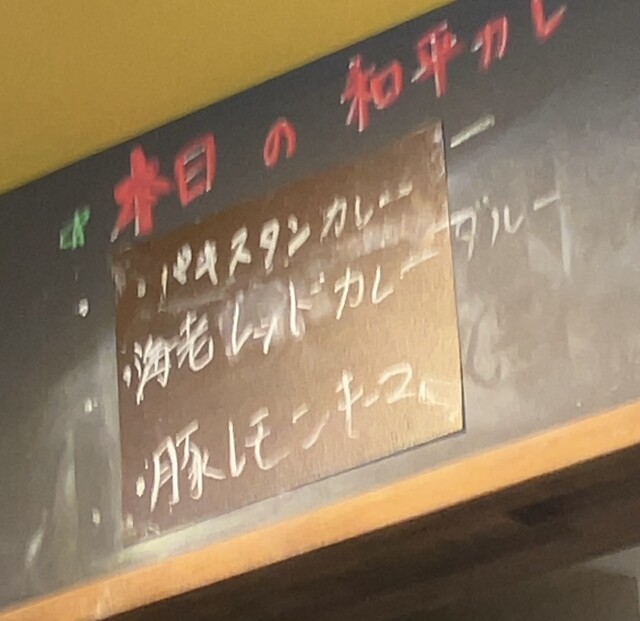 本日の和平カレ
・パキスタンカレー
・海老レッドカレー
・豚レモンキーマ